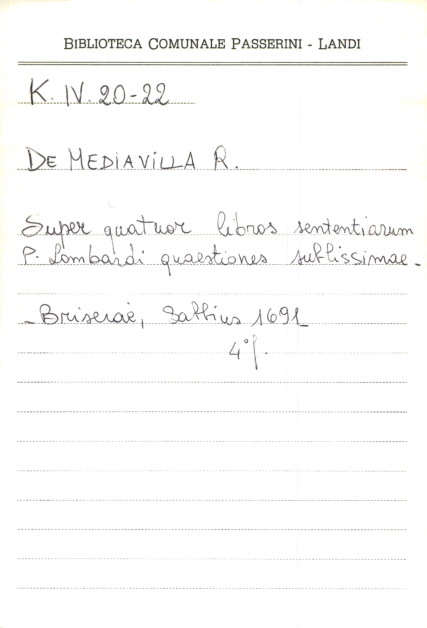 BIBLIOTECA COMUNALE PASSERINI - LANDI
K. IV. 20-22
DE MEDIAVILLA R.
Super quatuor libros sententiarum
P. Lombardi quaestiones subtlissimae -
- Briseiae, Sabbius 1691
4°f.